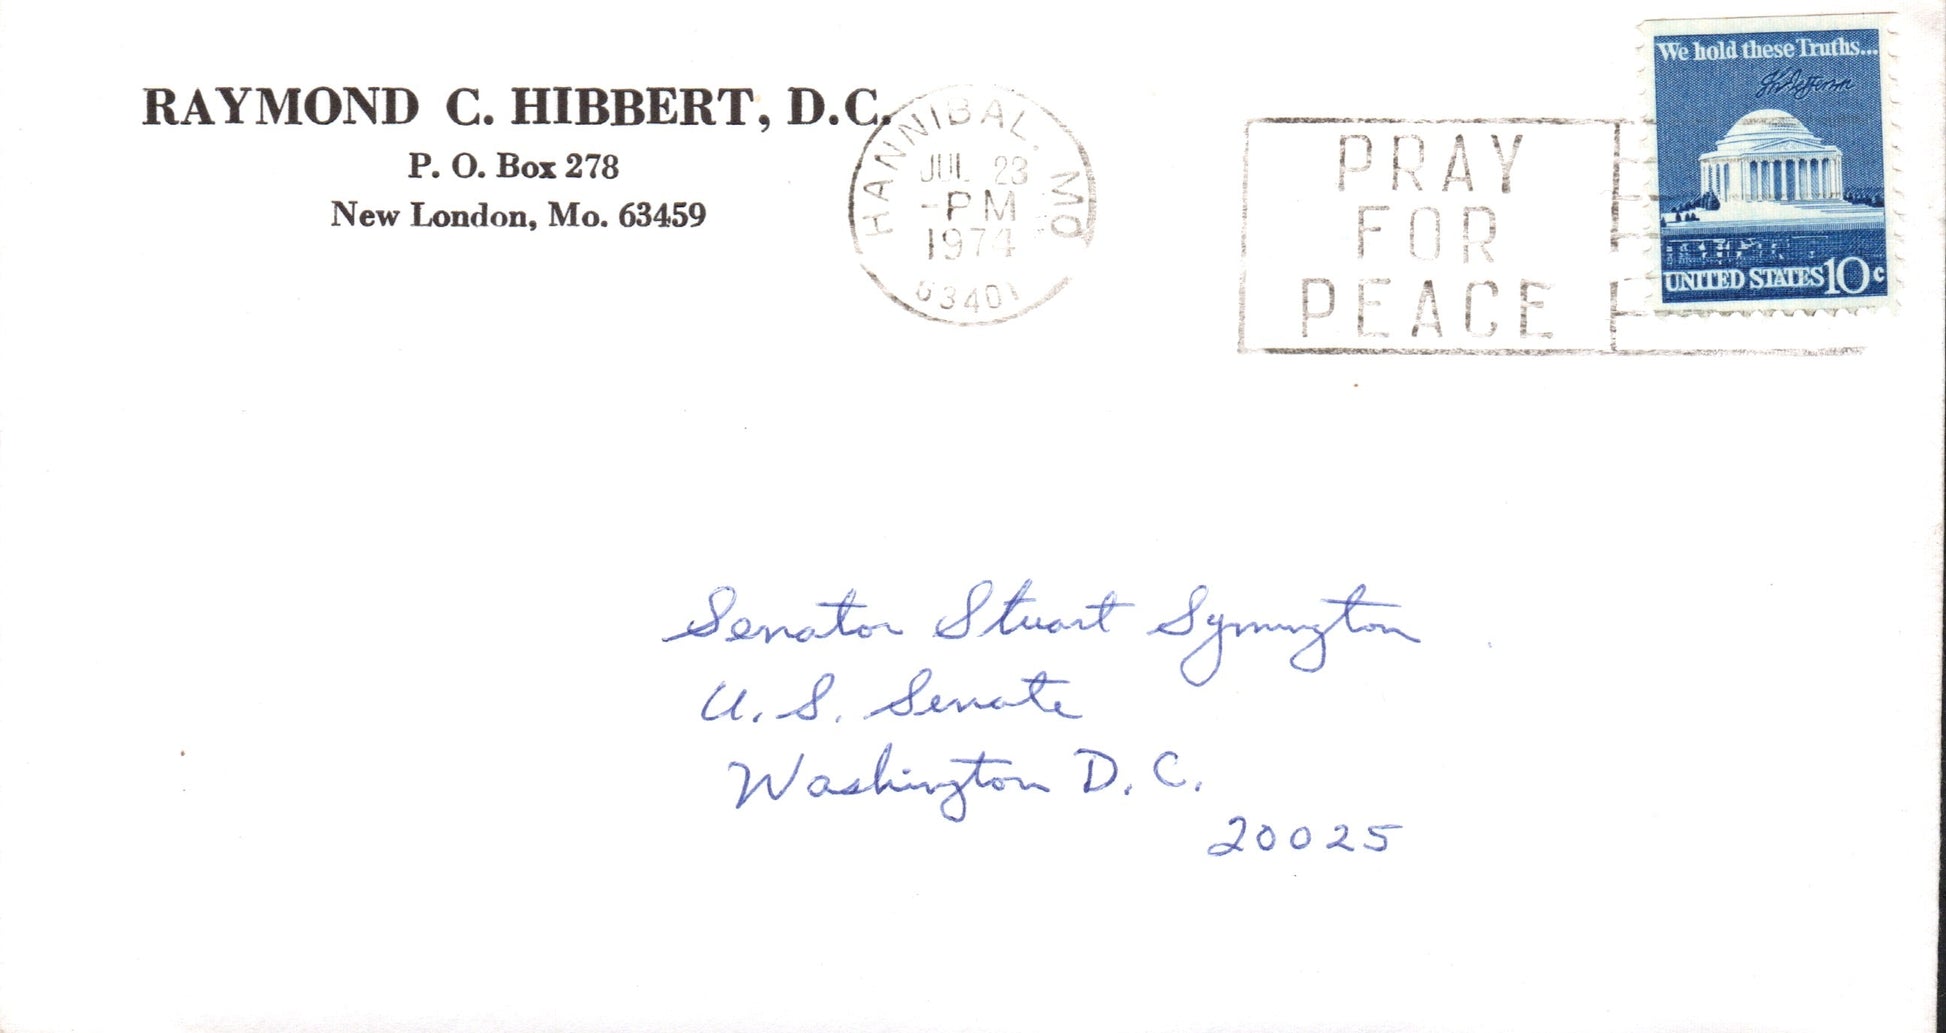 RAYMOND C. HIBBERT, D.C.
P. O. Box 278
New London, Mo. 63459
HANNIBAL, MO
JUL 23
-PM
1974
63401
PRAY
FOR
PEACE
We hold these Truths...
Th Jefferson
UNITED STATES 10c
Senator Stuart Symington
U. S. Senate
Washington D. C.
20025